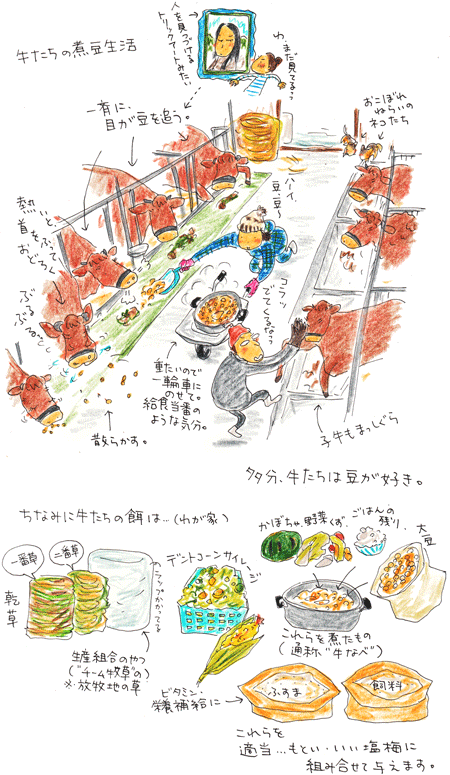 牛たちの煮豆生活
人を見つづける
トリックアートみたい
わ、まだ見てるっ
一斉に、
目が豆を追う。
おこぼれ
ねらいの
ネコたち
ハーイ、
豆、豆〜
熱いと、
首をふって
おどろく
ぶる
ぶる
コラッ
でてくるなっ
重たいので
一輪車に
のせて。
給食当番の
ような気分。
散らかす。
子牛もまっしぐら
多分、牛たちは豆が好き。
ちなみに牛たちの餌は…(わが家)
一番草
二番草
乾草
ラップがかかってる
生産組合のやつ
("チーム牧草"の)
※放牧地の草
デントコーンサイレージ
かぼちゃ、野菜くず、
ごはんの
残り、
大豆
これらを煮たもの
(通称"牛なべ")
ビタミン・
栄養補給に→
ふすま
飼料
これらを
適当…もとい・いい塩梅に
組み合せて与えます。